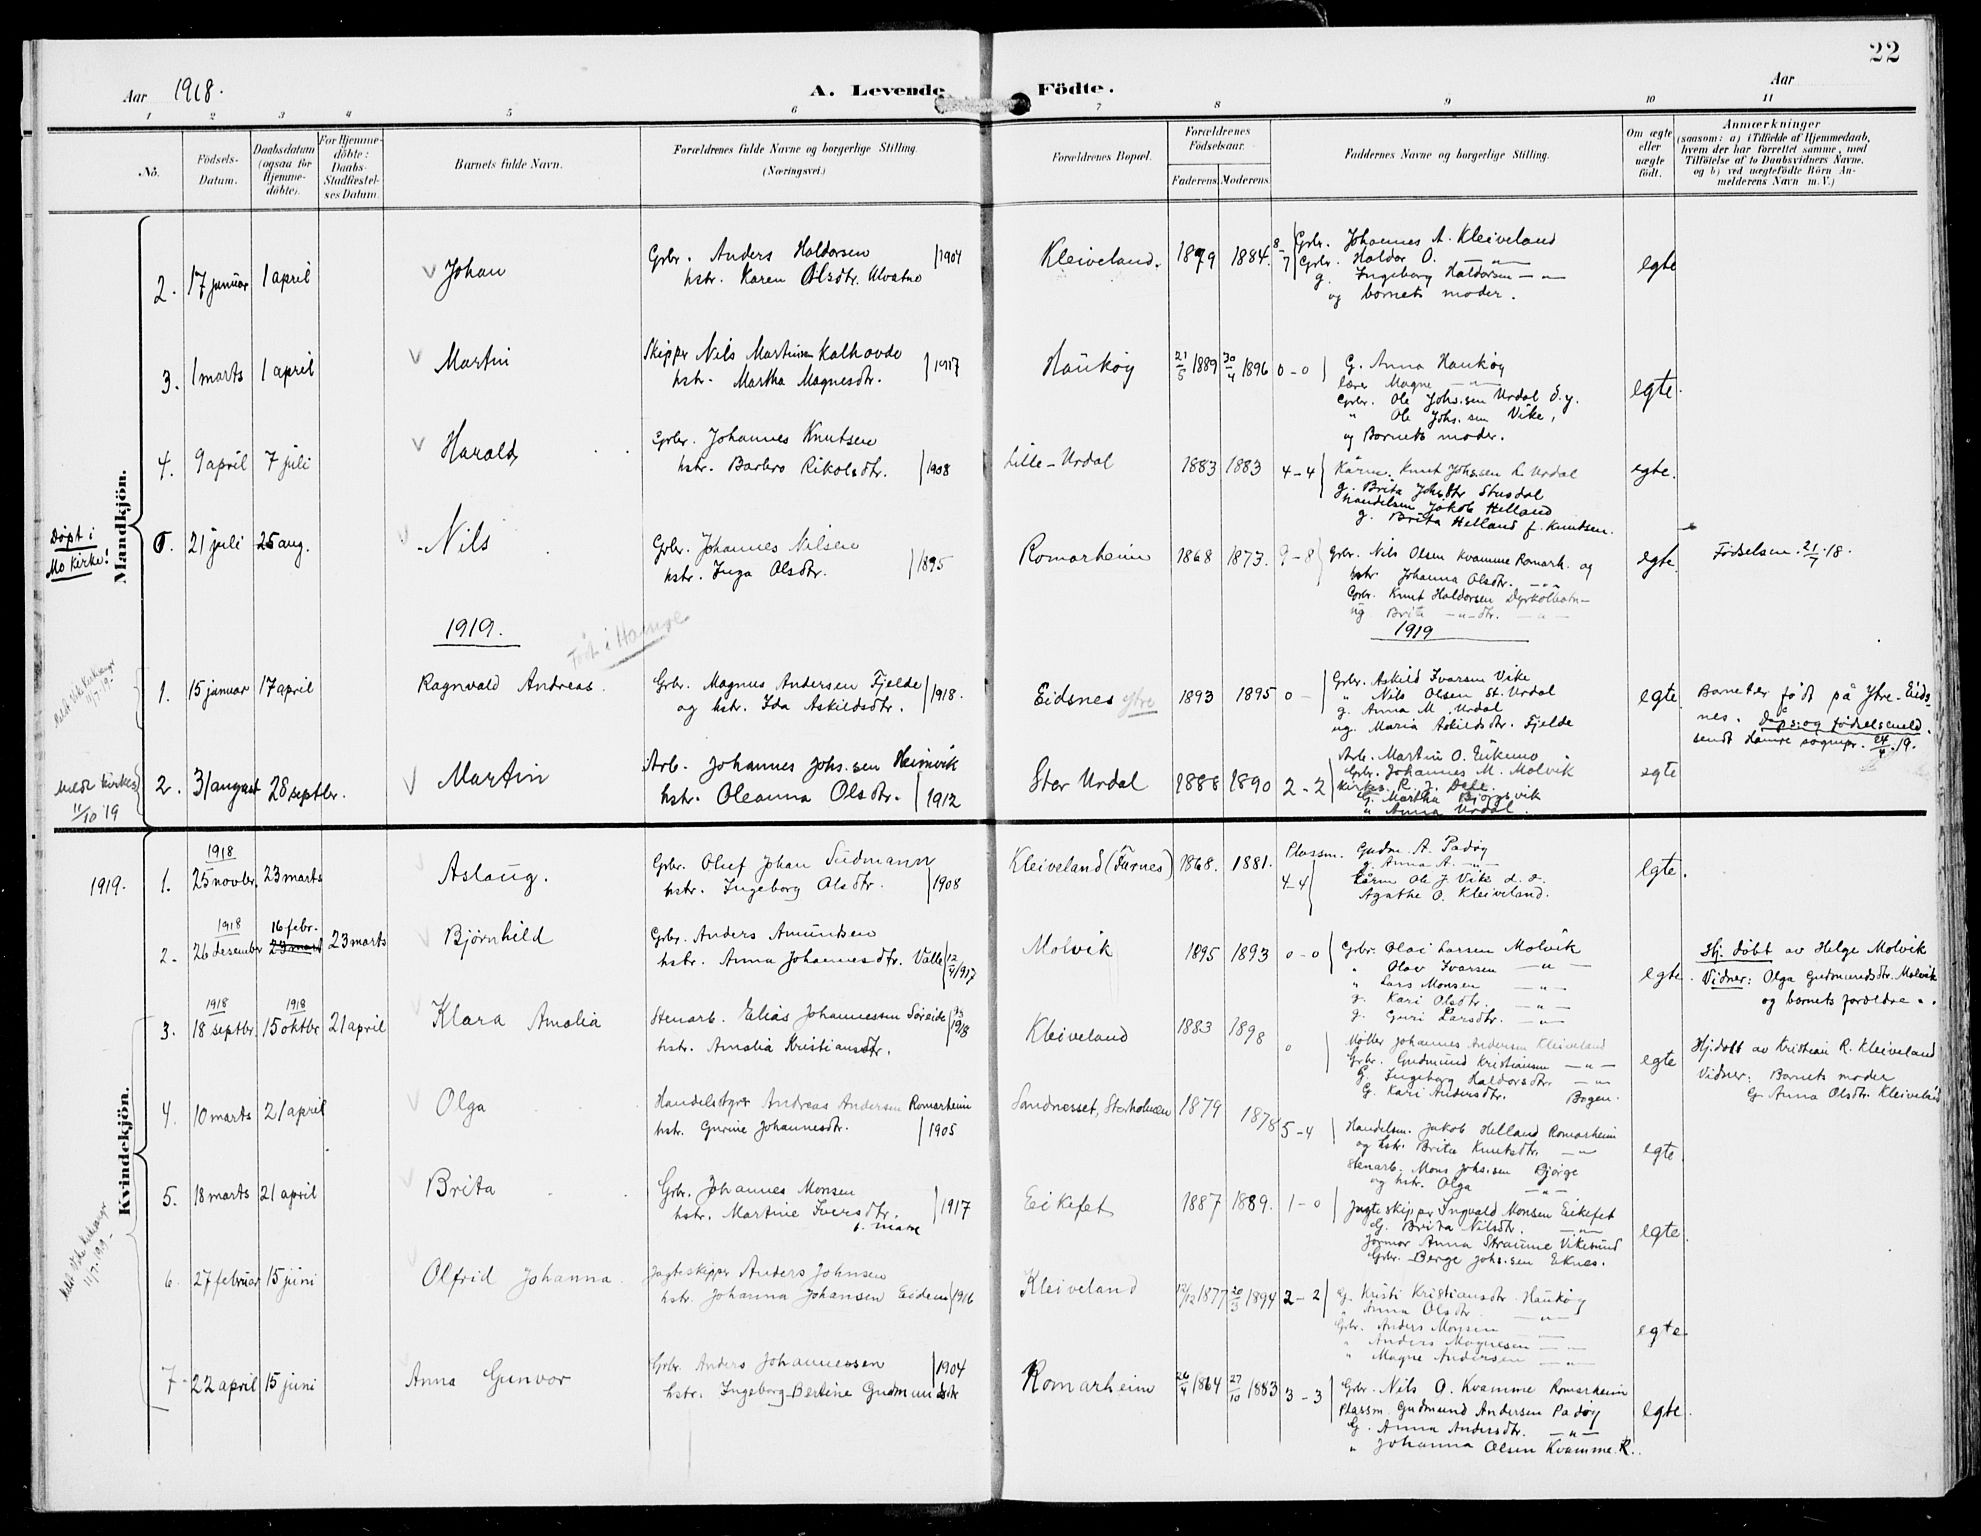 22
Aar 1918.
A. Levende Födte.
Aar
1 2 3 4 5 6 7 8 9 10 11
No.
Födsels-Datum.
Daabsdatum (ogsaa for Hjemme-döbte).
For Hjemme-döbte: Daabs-Stadfæstel-ses Datum.
Barnets fulde Navn.
Forældrenes fulde Navne og borgerlige Stilling. (Næringsvei.)
Forældrenes Bopæl.
Forældrenes Födselsaar.
Faderens Moderens
Faddernes Navne og borgerlige Stilling.
Om ægte eller uægte födt.
Anmærkninger
(saasom: a) i Tilfælde af Hjemmedaab,
hvem der har forrettet samme, med
Tilföielse af to Daabsvidners Navne,
og b) ved uægtefödte Börn An-
melderens Navn m. V.)
Mandkjön.
2. 17 januar 1 april Johan
Grbr. Anders Haldorsen /1904
hstr. Karen Olsdtr. Ulvatne
Kleiveland. 1879 1884. 8-7
Grbr. Johannes A. Kleiveland
Grbr. Haldor O. — " —
g. Ingeborg Haldorsen — " —
og barnets moder.
egte
3. 1 marts 1 april Martin
Skipper Nils Martinsen Kalhovde
hstr. Martha Magnesdtr. /1917
Haukøy 21/5 1889 30/4 1896 0-0
G. Anna Haukøy
lærer Magne — " —
Grbr. Ole Johs.sen Urdal S.y.
" Ole Johs.sen Vike,
og Barnets moder.
egte.
4. 9 april 7 juli Harald
Grbr. Johannes Knutsen
hstr. Barbro Rikolsdtr. /1908
Lille-Urdal 1883 1883 4-4
Kårm. Knut Johs.sen L. Urdal
g. Brita Johsdtr Stusdal
Handelsm Jakob Helland
g. Brita Helland f. Knutsen.
egte.
Døpt i
Mo kirke!
5. 21 juli 25 aug. Nils
Grbr. Johannes Nilsen
hstr. Inga Olsdtr. /1895
Romarheim 1868 1873. 9-8
grbr. Nils Olsen Kvamme Romarh. og
hstr Johanna Olsdtr. — " —
Grbr. Knut Haldorsen Dyrkolbotn
ug Brita — " — dtr. — " —
egte.
Fødselsm. 21/7. 18.
1919. Født i Hamre 1919
1. 15 januar 17 april Ragnvald Andreas.
Grbr. Magnus Andersen Fjelde
og hstr. Ida Askildsdtr. /1918.
Eidsnes ytre 1893 1895 0 -
Grbr. Askild Ivarsen Vike
" Nils Olsen St. Urdal
g. Anna M. Urdal
ug. Maria Askildsdtr. Fjelde
egte.
Barnet er født på Ytre-Eids-
nes. Dåps- og fødselsmeld.
sendt Hamre sognepr. 24/4. 19.
Meldt kirkes
11/10 '19
2. 31 august 28 septbr. Martin
Arb. Johannes Johs.sen Heimvik
hstr. Oleanna Olsdtr. /1912
Stor Urdal 1888 1890 2-2
Arb. Martin O. Eikemo
Grbr. Johannes M. Molvik
Kirkes. R. J. Dale.
G. Martha Bjørgsvik
" Anna Urdal.
egte
Kvindekjön.
1919.
1. 1918 25 novbr. 23 marts Aslaug.
Grbr. Oluf Johan Sudmann
hstr. Ingeborg Olsdtr. /1908
Kleiveland (Furnes) 1868. 1881. 4-4
Plassm. Gudm. A. Padøy
g. Anna A. — " —
Kårm Ole J. Vike d. e.
Agathe O. Kleiveland.
egte.
2. 1918 26 desember 16 febr. 23 mars 23 marts Bjørnhild
Grbr. Anders Amundsen
hstr. Anna Johannesdtr. Valle 12/4 1917
Molvik 1895 1893 0-0
Grbr. Olai Larsen Molvik
" Olav Ivarsen — " —
" Lars Monsen — " —
g. Kari Olsdtr. — " —
g. Guri Larsdtr. — " —
egte.
Hj. døbt av Helge Molvik
Vidner: Olga Gudmundsdtr. Molvik
og barnets forældre.
3. 1918 18 septbr. 1918 15 oktbr 21 april Klara Amalia
Stenarb. Elias Johannessen Søreide 1918
hstr. Amalia Kristiansdtr.
Kleiveland 1883 1898 0
Møller Johannes Andersen Kleiveland
Grbr. Gudmund Kristiansen — " —
G. Ingeborg Haldorsdtr. — " —
G. Kari Andersdtr. Bogen.
egte
Hj. døbt av Kristian R. Kleiveland
Vidner: Barnets moder
G. Anna Olsdtr. Kleiveland
4. 10 marts 21 april Olga
Handelsbyrer Andreas Andersen Romarheim
hstr. Gurine Johannesdtr. /1905
Sandnesset, Storholmen 1879 1878 5-4
Handelsm. Jakob Helland Romarheim
og hstr. Brita Knutsdtr. — " —
Stenarb. Mons Johs.sen Bjørge
og hstr. Olga — " —
egte.
5. 18 marts 21 april Brita
Grbr. Johannes Monsen
hstr. Martine Iversdtr. /1917
Eikefet 1887 1889. 1-0
Jagteskipper Ingvald Monsen Eikefet
G. Brita Nilsdtr. — " —
Jormor Anna Straume Vikesund
Grbr. Berge Johs.sen Eknes.
egte.
6. 27 februar 15 juni Olfrid Johanna.
Jagteskipper Anders Johnsen
hstr. Johanna Johansen Eidem /1916
Kleiveland 12/12 1877 20/3 1894 2-2
G. Kristi Kristiansdtr. Haukøy
" Anna Olsdtr. — " —
Grbr. Anders Monsen — " —
" Anders Magnesen — " —
" Magne Andersen — " —
egte.
7. 22 april 15 juni Anna Gunvor
Grbr. Anders Johannessen /1904
hstr. Ingeborg-Bertine Gudmundsdtr
Romarheim 26/4 1864 27/10 1883 3-3
Grbr. Nils O. Kvamme Romarheim
Plassm. Gudmund Andersen Padøy
G. Anna Andersdtr. — " —
" Johanna Olsen Kvamme. R.
egte.